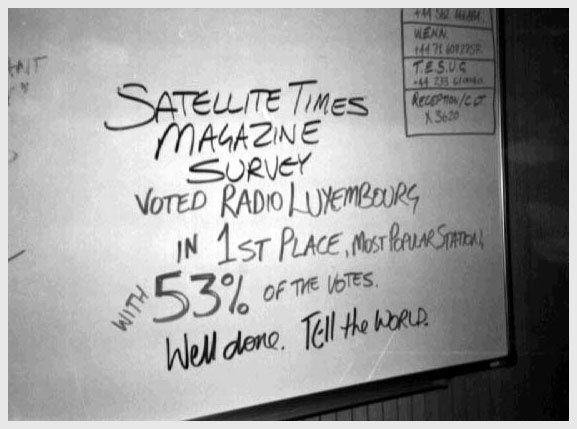 WENN.
T.E.S.U.G
RECEPTION/
X 3620
SATELLITE TIMES
MAGAZINE
SURVEY
VOTED RADIO LUXEMBOURG
IN 1ST PLACE, MOST POPULAR STATION,
WITH 53% OF THE VOTES.
Well done. Tell the WORLD.